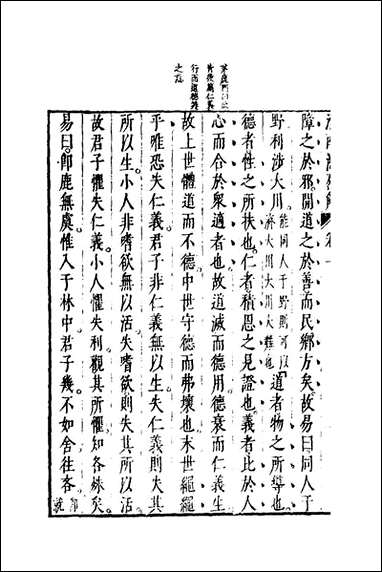 茅鹿門曰
行而道德
之
卷十
障之於邪開道之於善而民鄉方矣故易曰同人于
野利涉大川能同人于野則可以濟大川大川大難也道者物之所導也
德者性之所扶也仁者積恩之見證也義者比於人
心而合於衆適者也故道滅而德用德衰而仁義生
故上世體道而不德中世守德而弗壞也末世繩繩
乎唯恐失仁義君子非仁義無以生失仁義則失其
所以生小人非嗜欲無以活失嗜欲則失其所以活
故君子懼失仁義小人懼失利觀其所懼知各殊矣
易曰即鹿無虞惟入于林中君子幾不如舍往吝即就